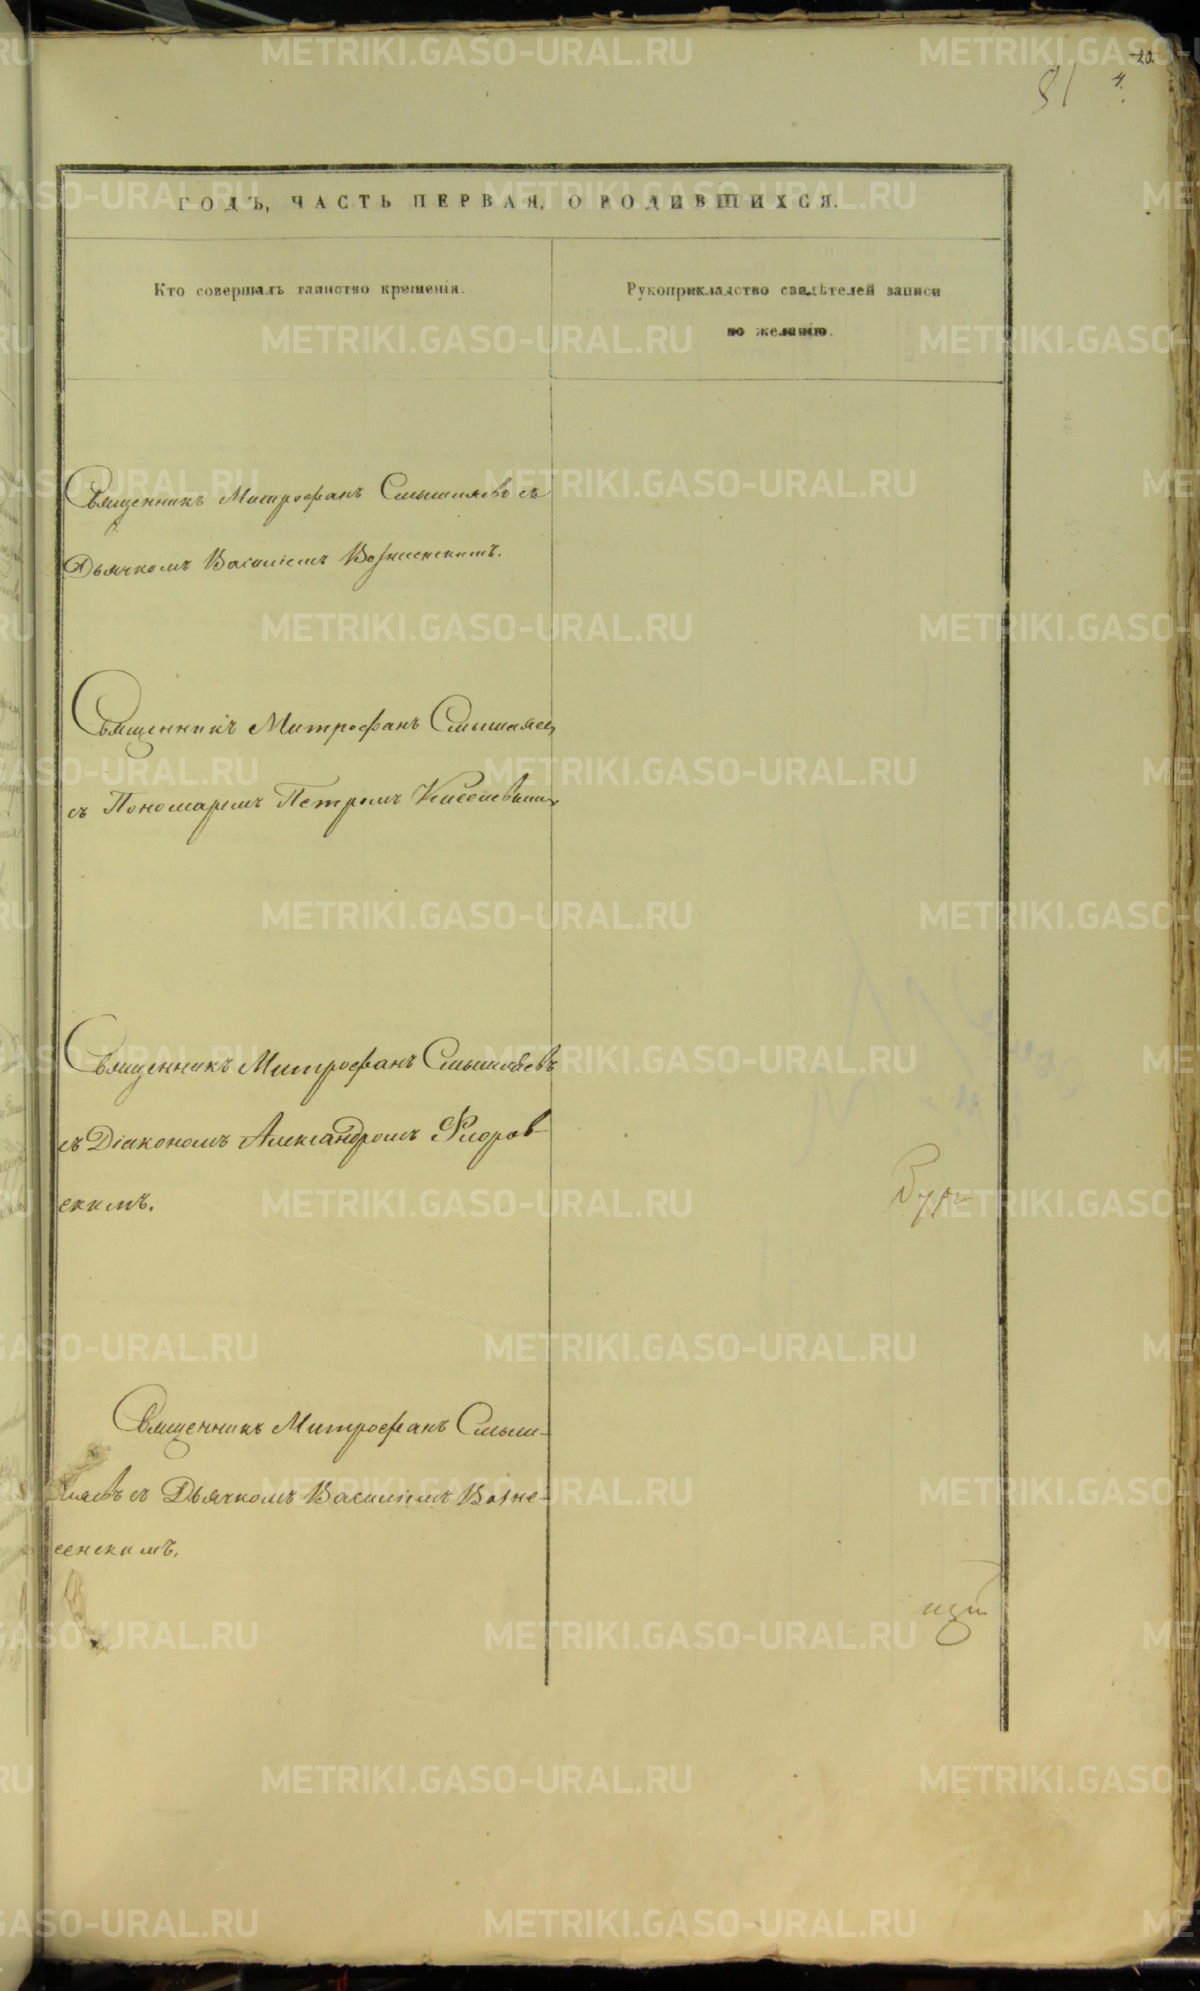 20.
4.
81
ГОДЪ, ЧАСТЬ ПЕРВАЯ, О РОДИВШИХСЯ.
Кто совершалъ таинство крещенія.
Рукоприкладство свидѣтелей записи
по желанію.
Священникъ Митрофанъ Смышляевъ съ
Дьячкомъ Василіемъ Вознесенскимъ.
Священникъ Митрофанъ Смышляевъ
съ Пономаремъ Петромъ Киселевымъ
Священникъ Митрофанъ Смышляевъ
съ Діакономъ Александромъ Флоров
скимъ.
Священникъ Митрофанъ Смыш-
ляевъ съ Дьячкомъ Василіемъ Возне-
сенскимъ.
METRIKI.GASO-URAL.RU